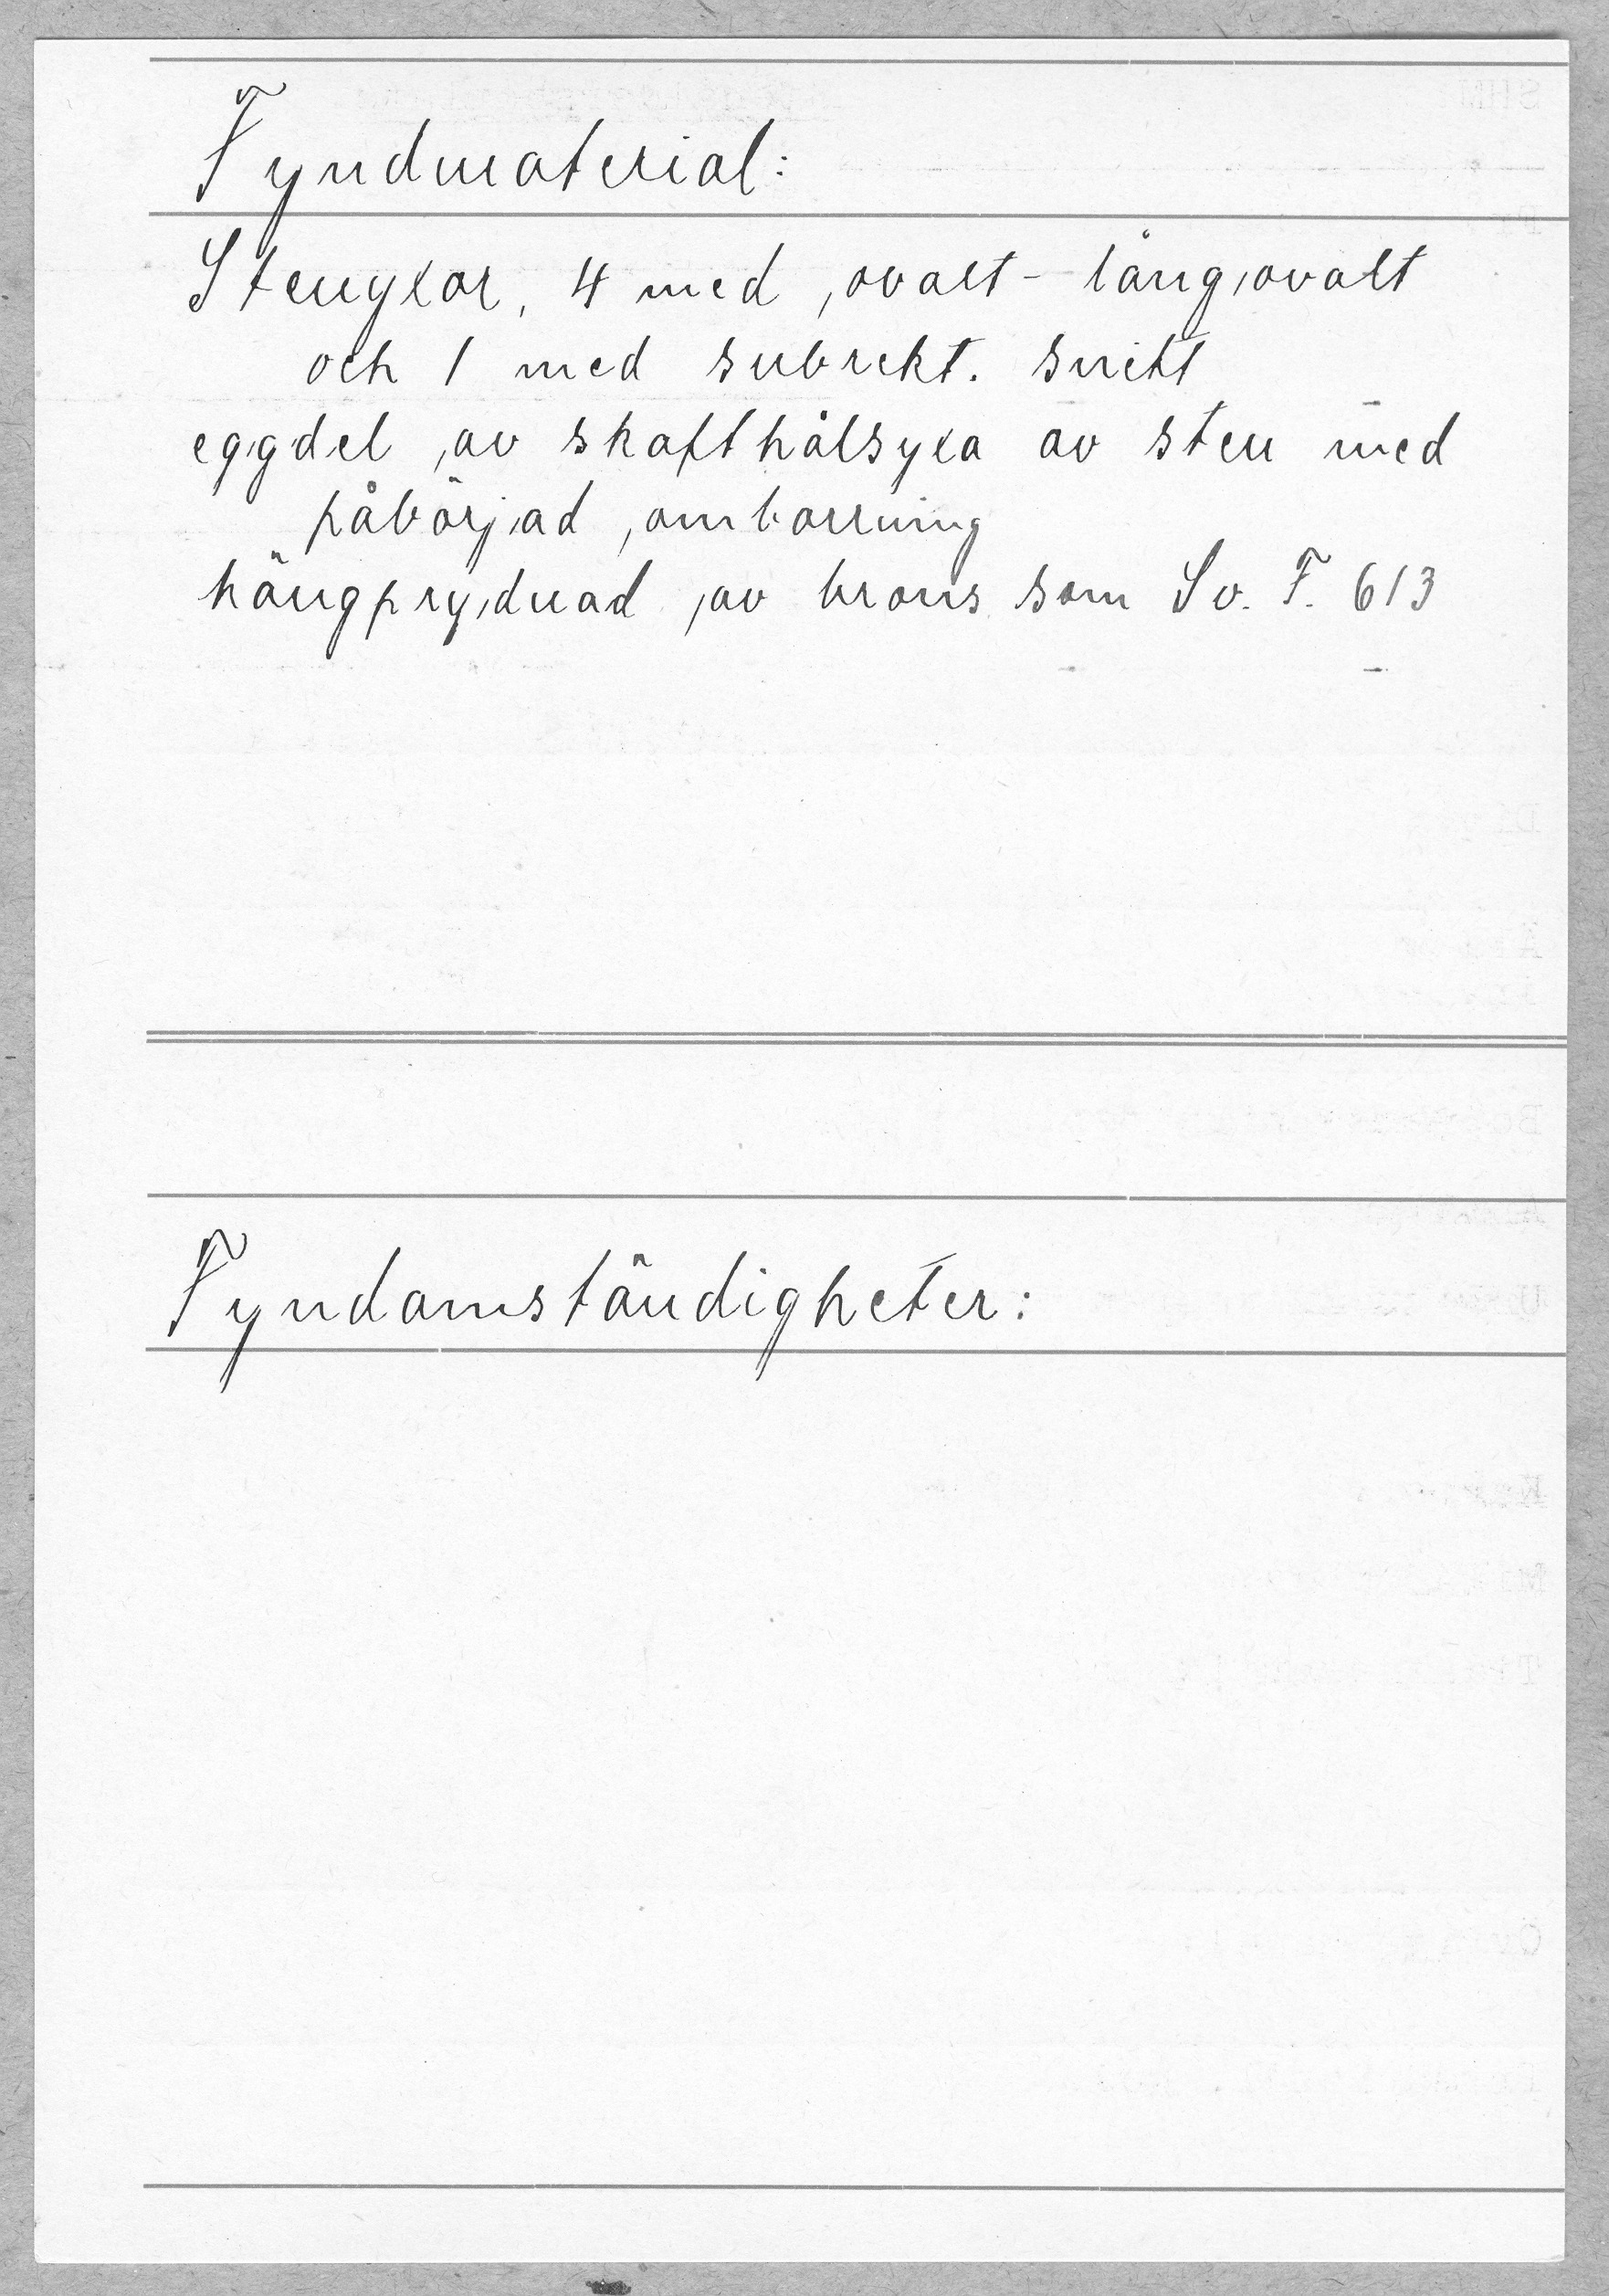 Fyndmaterial:
Stenyxor, 4 med ovalt-långovalt
och 1 med subrekt. snitt
eggdel av skafthålsyxa av sten med
påbörjad omborrning
hängprydnad av brons som Sv. F. 613
Fyndomständigheter: